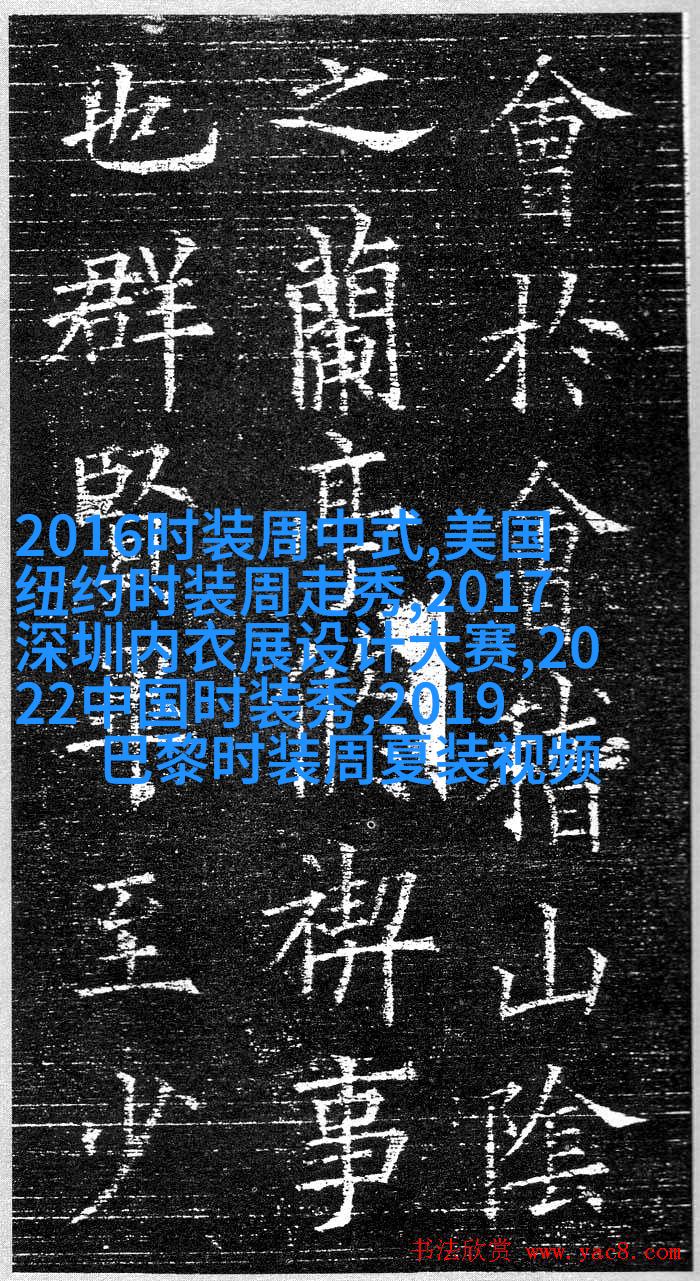 會於會稽山陰
之蘭亭禊事
也群賢至少
2016时装周中式,美国
纽约时装周走秀,2017
深圳内衣展设计大赛,20
22中国时装秀,2019
巴黎时装周夏装视频
书法欣赏 www.yac8.com